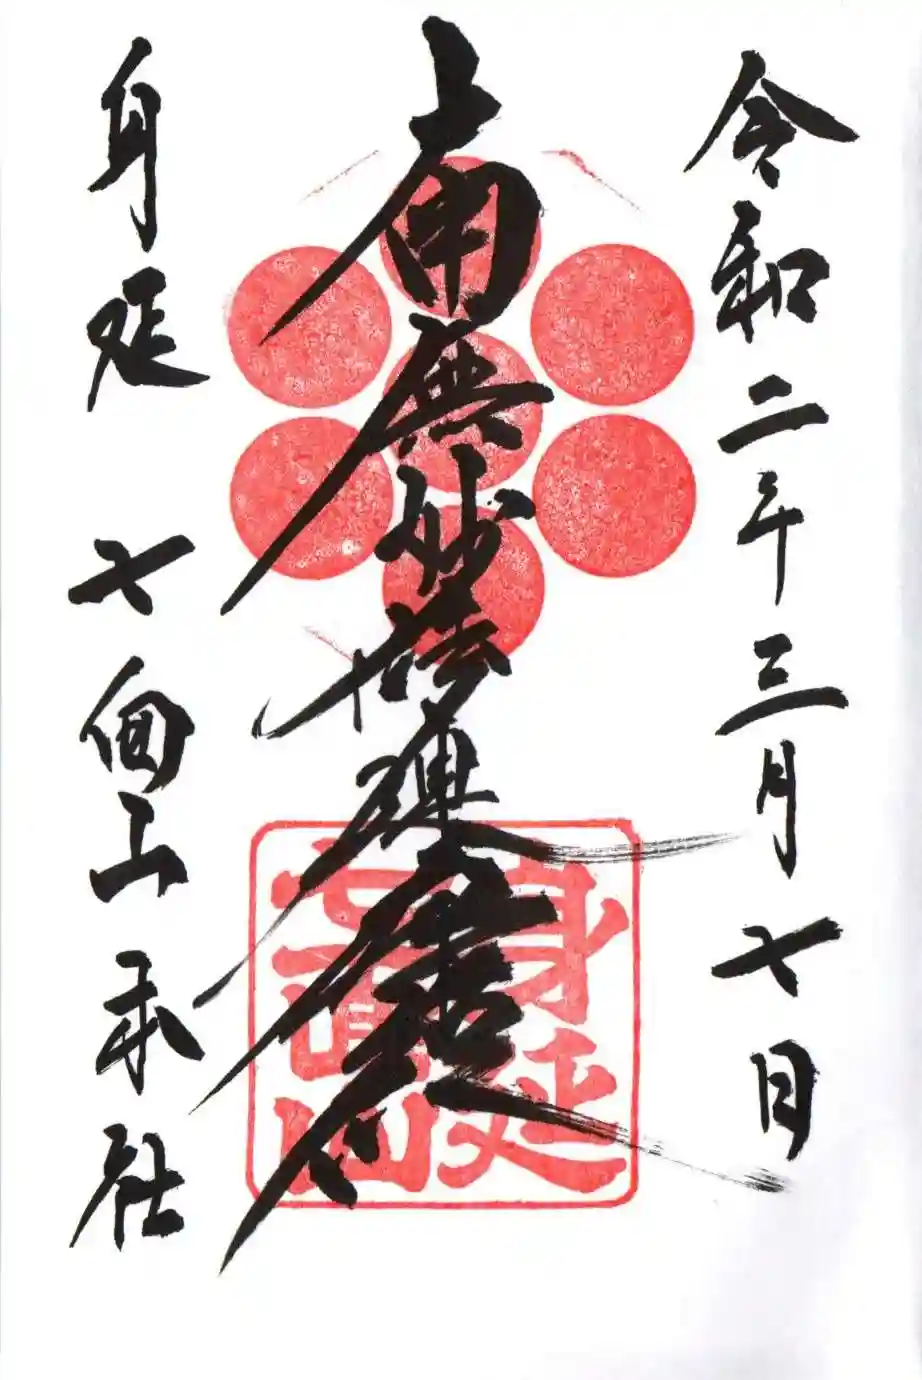 令和二年三月七日
南無妙法蓮華経
身延七面山本社
身延
七面山